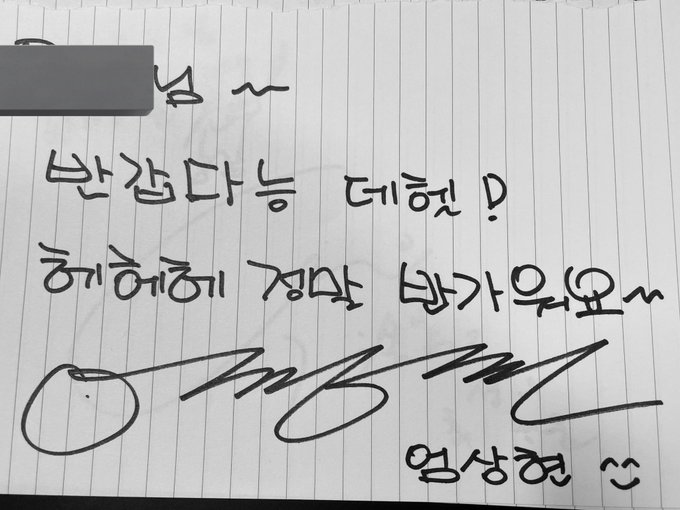 님 ~
반갑다능 데헷!
헤헤헤 정말 반가워요~
엄상현 ^^